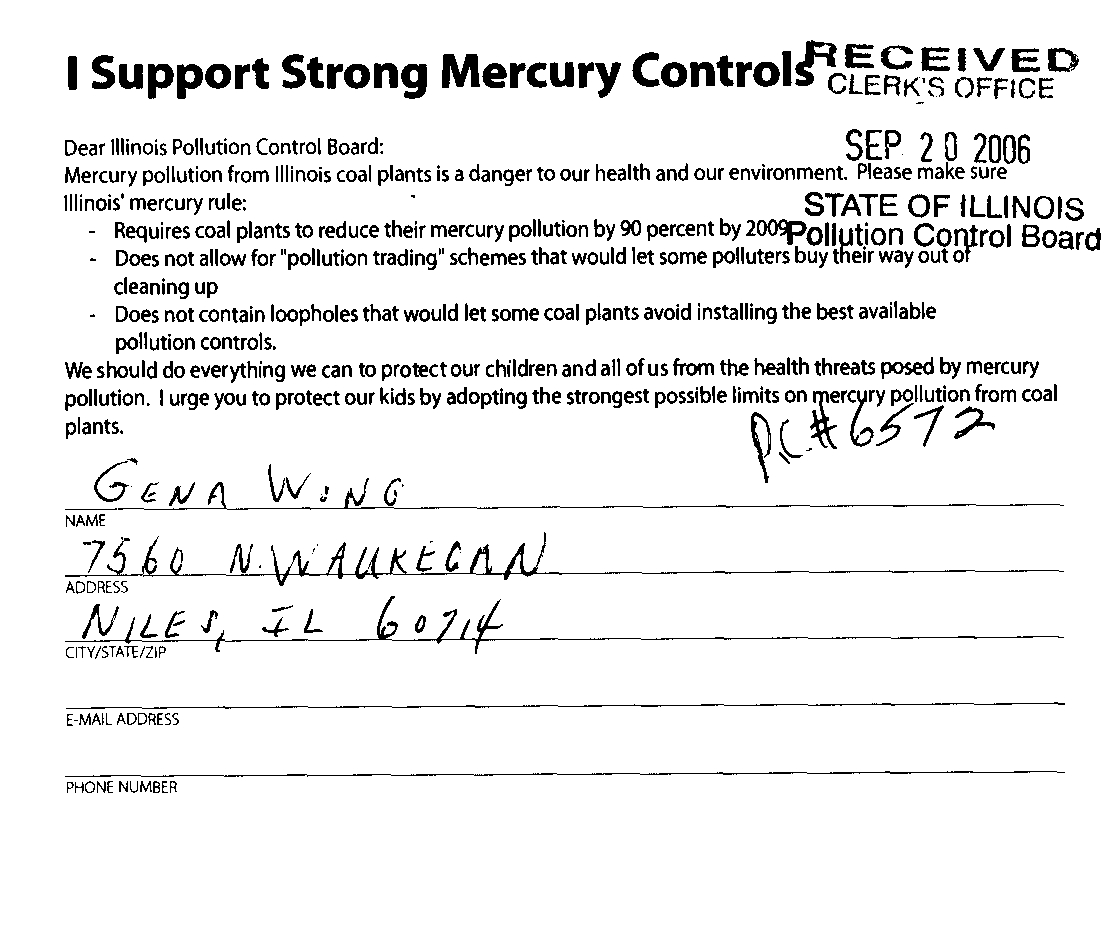 I Support Strong Mercury Controls
RECEIVED
CLERK'S OFFICE
SEP 20 2006
STATE OF ILLINOIS
Pollution Control Board
Dear Illinois Pollution Control Board:
Mercury pollution from Illinois coal plants is a danger to our health and our environment. Please make sure
Illinois' mercury rule:
- Requires coal plants to reduce their mercury pollution by 90 percent by 2009
- Does not allow for "pollution trading" schemes that would let some polluters buy their way out of
cleaning up
- Does not contain loopholes that would let some coal plants avoid installing the best available
pollution controls.
We should do everything we can to protect our children and all of us from the health threats posed by mercury
pollution. I urge you to protect our kids by adopting the strongest possible limits on mercury pollution from coal
plants.
P.C.#6572
GENA WING
NAME
7560 N. WAUKEGAN
ADDRESS
NILES, IL 60714
CITY/STATE/ZIP
E-MAIL ADDRESS
PHONE NUMBER